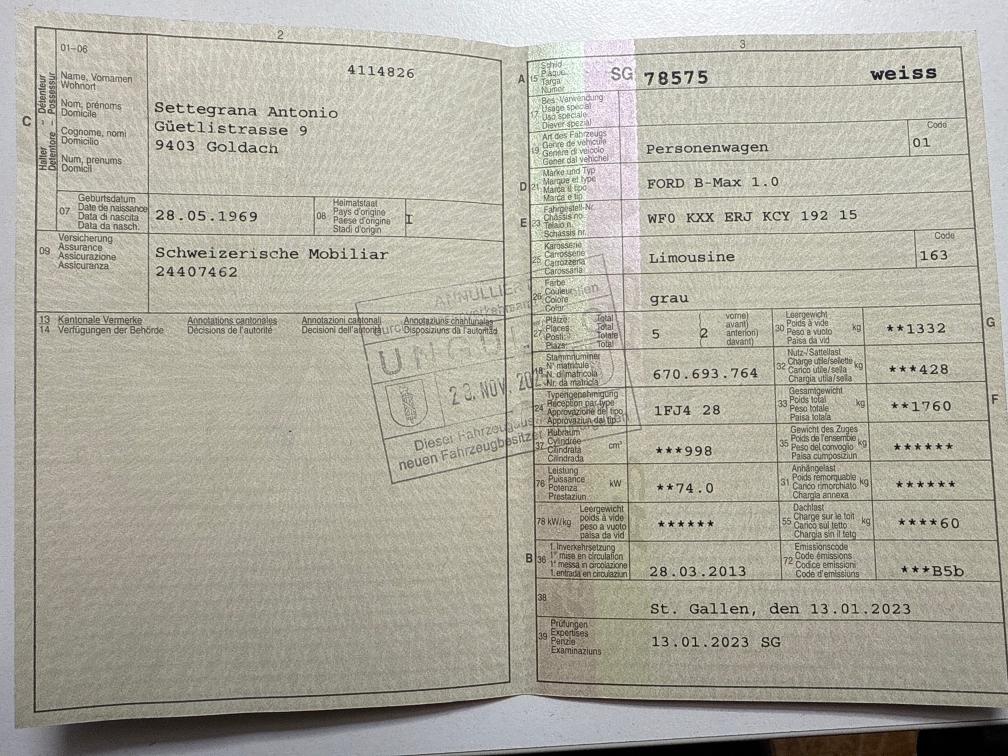 2
01-06
Halter - Détenteur
Detentore - Possessur
C
Name, Vornamen
Wohnort
Nom, prénoms
Domicile
Cognome, nomi
Domicilio
Num, prenums
Domicil
4114826
Settegrana Antonio
Güetlistrasse 9
9403 Goldach
07
Geburtsdatum
Date de naissance
Data di nascita
Data da nasch.
28.05.1969
08
Heimatstaat
Pays d'origine
Paese d'origine
Stadi d'origin
I
09
Versicherung
Assurance
Assicurazione
Assicuranza
Schweizerische Mobiliar
24407462
13 Kantonale Vermerke Annotations cantonales Annotazioni cantonali Annotaziuns chantunalas
14 Verfügungen der Behörde Décisions de l'autorité Decisioni dell'autorità Disposiziuns da l'autoritad
ANNULLIER
23. NOV. 20
Dieser Fahrzeugaus
neuen Fahrzeugbesitzer
3
A
15
Schild
Plaque
Targa
Numer
SG 78575 weiss
17
Bes. Verwendung
Usage spécial
Uso speciale
Diever spezial
19
Art des Fahrzeugs
Genre de véhicule
Genere di veicolo
Gener dal vehichel
Personenwagen
Code
01
D
21
Marke und Typ
Marque et type
Marca e tipo
Marca e tip
FORD B-Max 1.0
E
23
Fahrgestell-Nr.
Châssis no
Telaio n.
Schassis nr.
WF0 KXX ERJ KCY 192 15
25
Karosserie
Carrosserie
Carrozzeria
Carossaria
Limousine
Code
163
26
Farbe
Couleur
Colore
Colur
grau
27
Plätze: Total
Places: Total
Posti: Totale
Plazs: Total
5
2
vorne)
avant)
anteriori)
davant)
30
Leergewicht
Poids à vide
Peso a vuoto
Paisa da vid
kg
**1332
G
18
Stammnummer
N° matricule
N. di matricola
Nr. da matricla
670.693.764
32
Nutz-/Sattellast
Charge utile/sellette
Carico utile/sella
Chargia utila/sella
kg
***428
24
Typengenehmigung
Réception par type
Approvazione del tipo
Approvaziun dal tip
1FJ4 28
33
Gesamtgewicht
Poids total
Peso totale
Paisa totala
kg
**1760
F
37
Hubraum
Cylindrée
Cilindrata
Cilindrada
cm³
***998
35
Gewicht des Zuges
Poids de l'ensemble
Peso del convoglio
Paisa cumposiziun
kg
******
76
Leistung
Puissance
Potenza
Prestaziun
kW
**74.0
31
Anhängelast
Poids remorquable
Carico rimorchiato
Chargia annexa
kg
******
78 kW/kg
Leergewicht
poids à vide
peso a vuoto
paisa da vid
******
55
Dachlast
Charge sur le toit
Carico sul tetto
Chargia sin il tetg
kg
****60
B
36
1. Inverkehrsetzung
1re mise en circulation
1a messa in circolazione
1. entrada en circulaziun
28.03.2013
72
Emissionscode
Code émissions
Codice emissioni
Code d'emissiuns
***B5b
38
St. Gallen, den 13.01.2023
39
Prüfungen
Expertises
Perizie
Examinaziuns
13.01.2023 SG